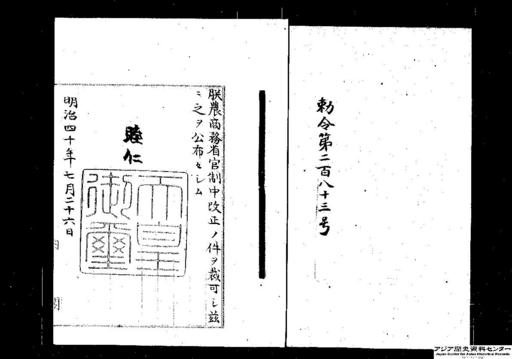 勅令第二百八十三号
朕農商務省官制中改正ノ件ヲ裁可シ茲
ニ之ヲ公布セシム
睦仁
天皇
御璽
明治四十年七月二十六日
アジア歴史資料センター
Japan Center for Asian Historical Records